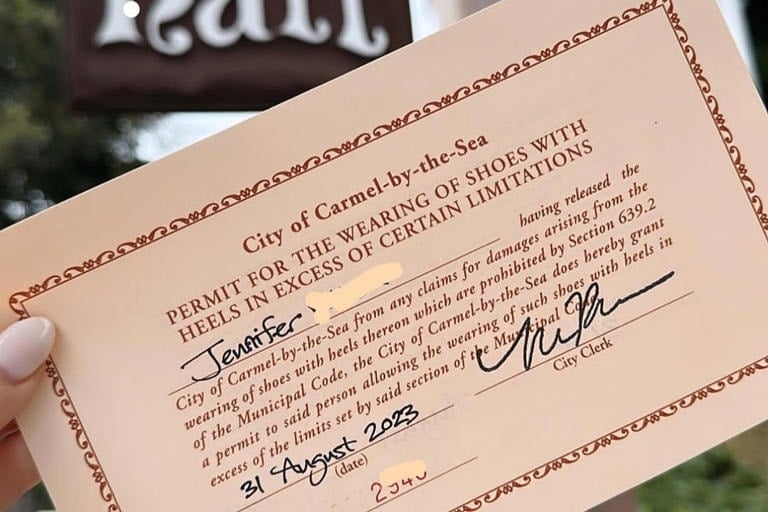 Hall
City of Carmel-by-the-Sea
PERMIT FOR THE WEARING OF SHOES WITH
HEELS IN EXCESS OF CERTAIN LIMITATIONS
Jennifer having released the
City of Carmel-by-the-Sea from any claims for damages arising from the
wearing of shoes with heels thereon which are prohibited by Section 639.2
of the Municipal Code, the City of Carmel-by-the-Sea does hereby grant
a permit to said person allowing the wearing of such shoes with heels in
excess of the limits set by said section of the Municipal Code.
31 August 2023
(date)
City Clerk